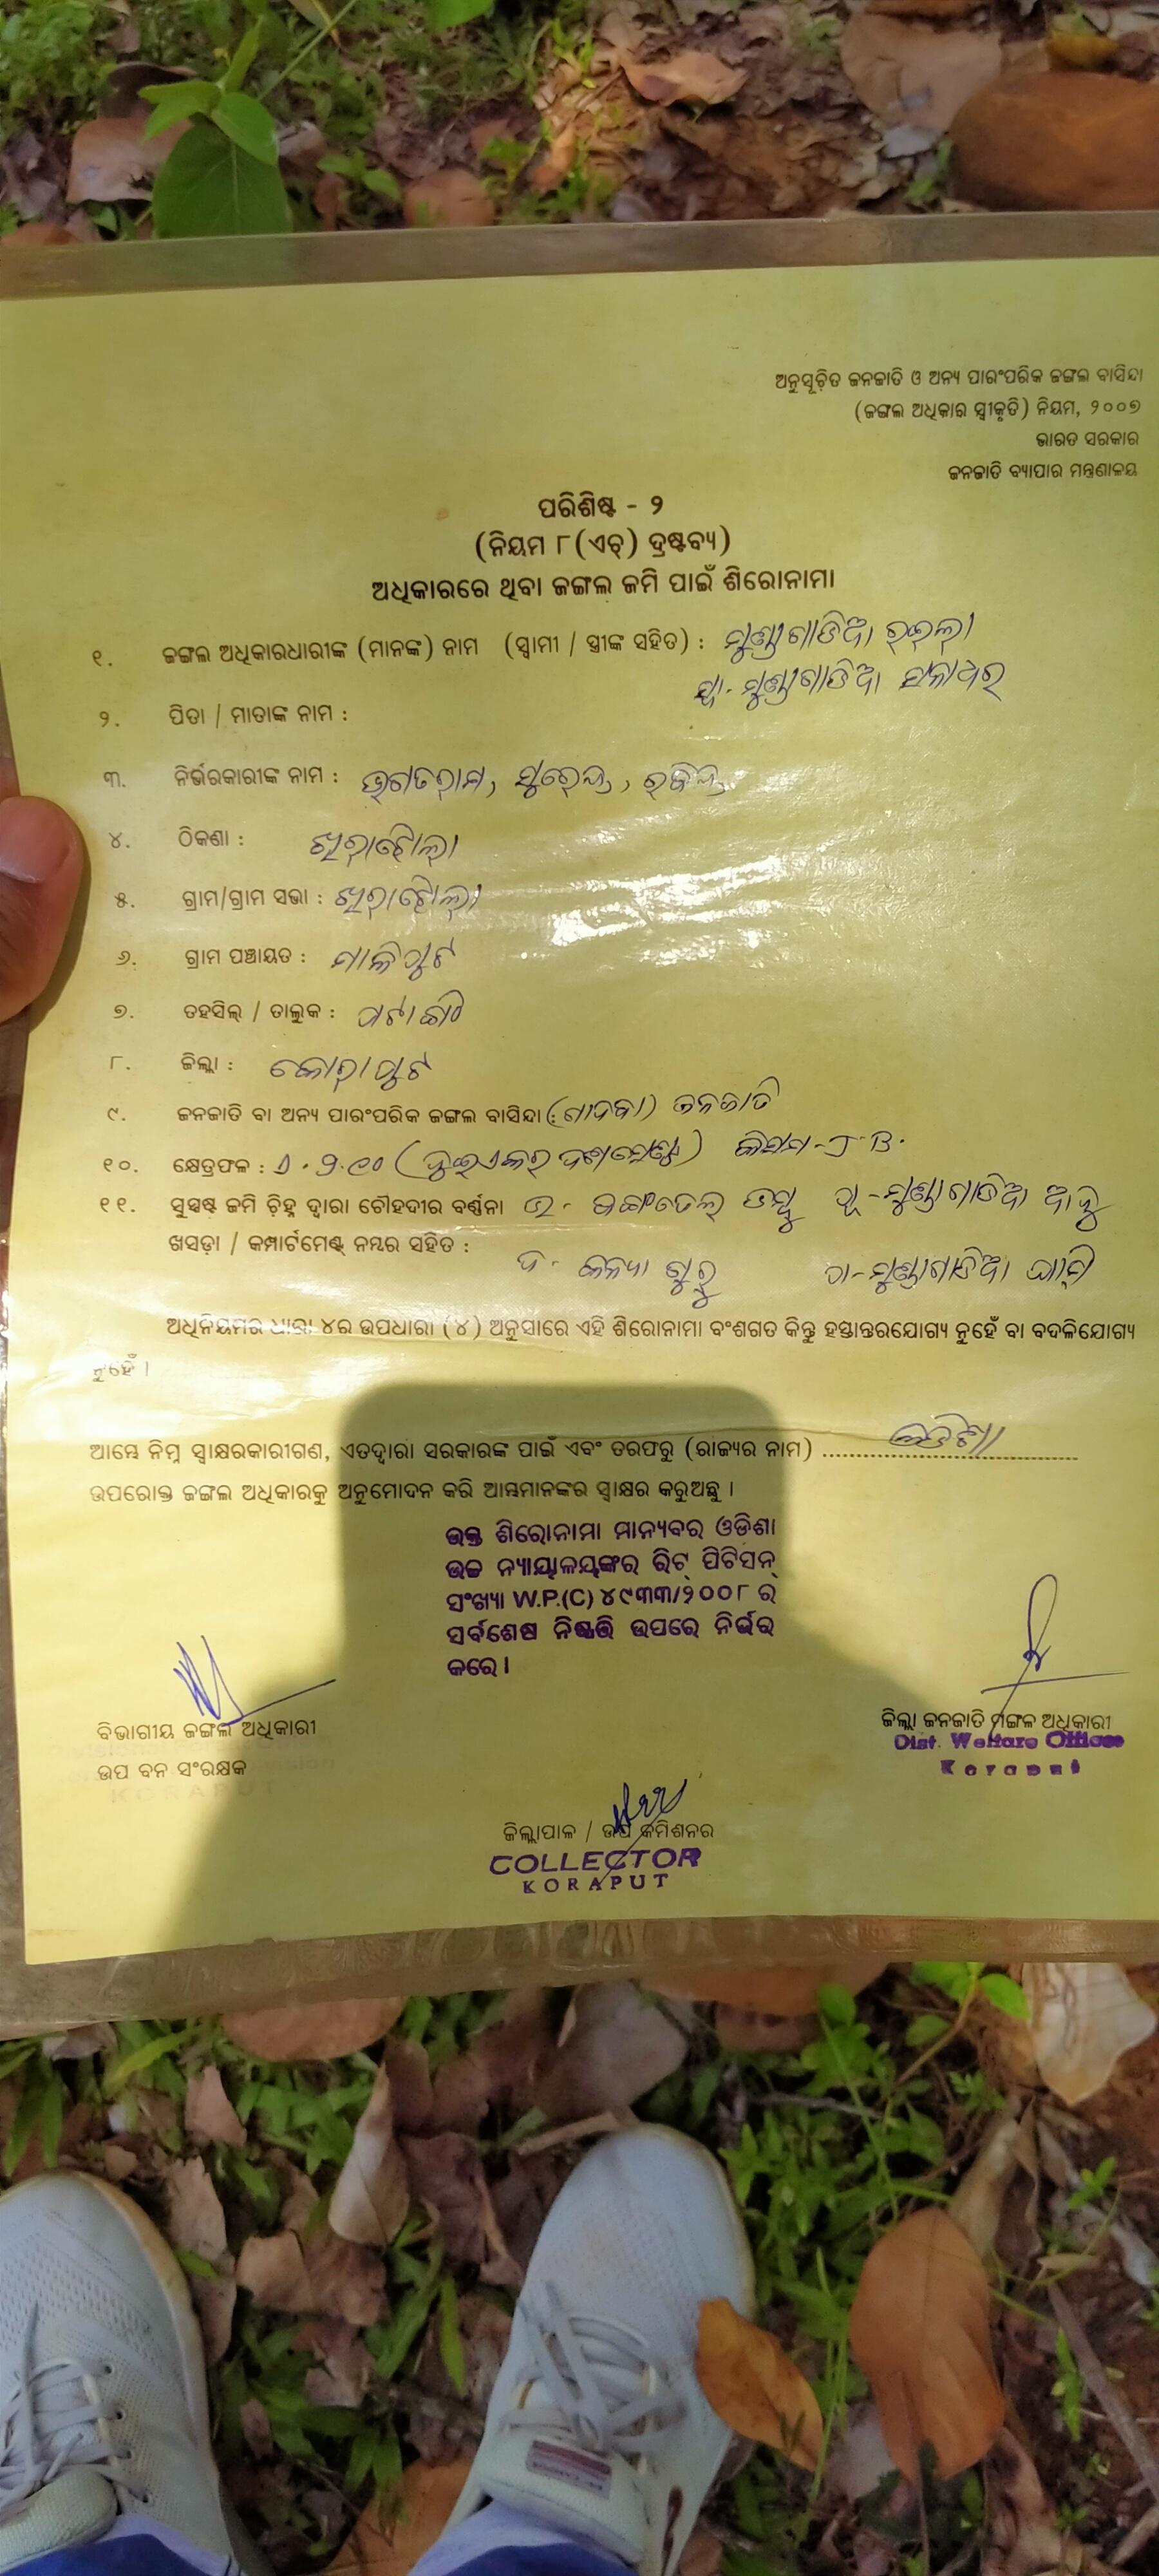 ଅନୁସୂଚିତ ଜନଜାତି ଓ ଅନ୍ୟ ପାରଂପରିକ ଜଙ୍ଗଲ ବାସିନ୍ଦା
(ଜଙ୍ଗଲ ଅଧିକାର ସ୍ୱୀକୃତି) ନିୟମ, ୨୦୦୭
ଭାରତ ସରକାର
ଜନଜାତି ବ୍ୟାପାର ମନ୍ତ୍ରଣାଳୟ
ପରିଶିଷ୍ଟ - ୨
(ନିୟମ ୮(ଏଚ୍) ଦ୍ରଷ୍ଟବ୍ୟ)
ଅଧିକାରରେ ଥିବା ଜଙ୍ଗଲ ଜମି ପାଇଁ ଶିରୋନାମା
୧. ଜଙ୍ଗଲ ଅଧିକାରଧାରୀଙ୍କ (ମାନଙ୍କ) ନାମ (ସ୍ୱାମୀ / ସ୍ତ୍ରୀଙ୍କ ସହିତ) : ମୁଣ୍ଡାଗାଡିଆ
ସ୍ୱା- ମୁଣ୍ଡାଗାଡିଆ
୨. ପିତା / ମାତାଙ୍କ ନାମ :
୩. ନିର୍ଭରକାରୀଙ୍କ ନାମ : ଭଗତରାମ, ସୁରେନ୍ଦ୍ର,
୪. ଠିକଣା :
୫. ଗ୍ରାମ/ଗ୍ରାମ ସଭା :
୬. ଗ୍ରାମ ପଞ୍ଚାୟତ : ମାଳିପୁଟ
୭. ତହସିଲ୍ / ତାଲୁକ : ପଟାଙ୍ଗୀ
୮. ଜିଲ୍ଲା : କୋରାପୁଟ
୯. ଜନଜାତି ବା ଅନ୍ୟ ପାରଂପରିକ ଜଙ୍ଗଲ ବାସିନ୍ଦା : (ଗାଦବା) ଜନଜାତି
୧୦. କ୍ଷେତ୍ରଫଳ : (ଦୁଇଏକର ଦଶସେଣ୍ଟ) କିସମ-J.B.
୧୧. ସୁସ୍ପଷ୍ଟ ଜମି ଚିହ୍ନ ଦ୍ୱାରା ଚୌହଦୀର ବର୍ଣ୍ଣନା ଉ - ପୂ-ମୁଣ୍ଡାଗାଡିଆ
ଖସଡ଼ା / କମ୍ପାର୍ଟମେଣ୍ଟ ନମ୍ବର ସହିତ : ଦ - ଗୁରୁ ପ-ମୁଣ୍ଡାଗାଡିଆ
ଅଧିନିୟମର ଧାରା ୪ର ଉପଧାରା (୪) ଅନୁସାରେ ଏହି ଶିରୋନାମା ବଂଶଗତ କିନ୍ତୁ ହସ୍ତାନ୍ତରଯୋଗ୍ୟ ନୁହେଁ ବା ବଦଳିଯୋଗ୍ୟ
ନୁହେଁ ।
ଆମ୍ଭେ ନିମ୍ନ ସ୍ୱାକ୍ଷରକାରୀଗଣ, ଏତଦ୍ଦ୍ୱାରା ସରକାରଙ୍କ ପାଇଁ ଏବଂ ତରଫରୁ (ରାଜ୍ୟର ନାମ) ଓଡିଶା
ଉପରୋକ୍ତ ଜଙ୍ଗଲ ଅଧିକାରକୁ ଅନୁମୋଦନ କରି ଆମ୍ଭମାନଙ୍କର ସ୍ୱାକ୍ଷର କରୁଅଛୁ ।
ଉକ୍ତ ଶିରୋନାମା ମାନ୍ୟବର ଓଡିଶା
ଉଚ୍ଚ ନ୍ୟାୟାଳୟଙ୍କର ରିଟ୍ ପିଟିସନ୍
ସଂଖ୍ୟା W.P.(C) ୪୯୩୩/୨୦୦୮ ର
ସର୍ବଶେଷ ନିଷ୍ପତ୍ତି ଉପରେ ନିର୍ଭର
କରେ।
ବିଭାଗୀୟ ଜଙ୍ଗଲ ଅଧିକାରୀ
ଉପ ବନ ସଂରକ୍ଷକ
KORAPUT
ଜିଲ୍ଲା ଜନଜାତି ମଙ୍ଗଳ ଅଧିକାରୀ
Dist. Welfare Officer
Koraput
ଜିଲ୍ଲାପାଳ / ଉପ କମିଶନର
COLLECTOR
KORAPUT